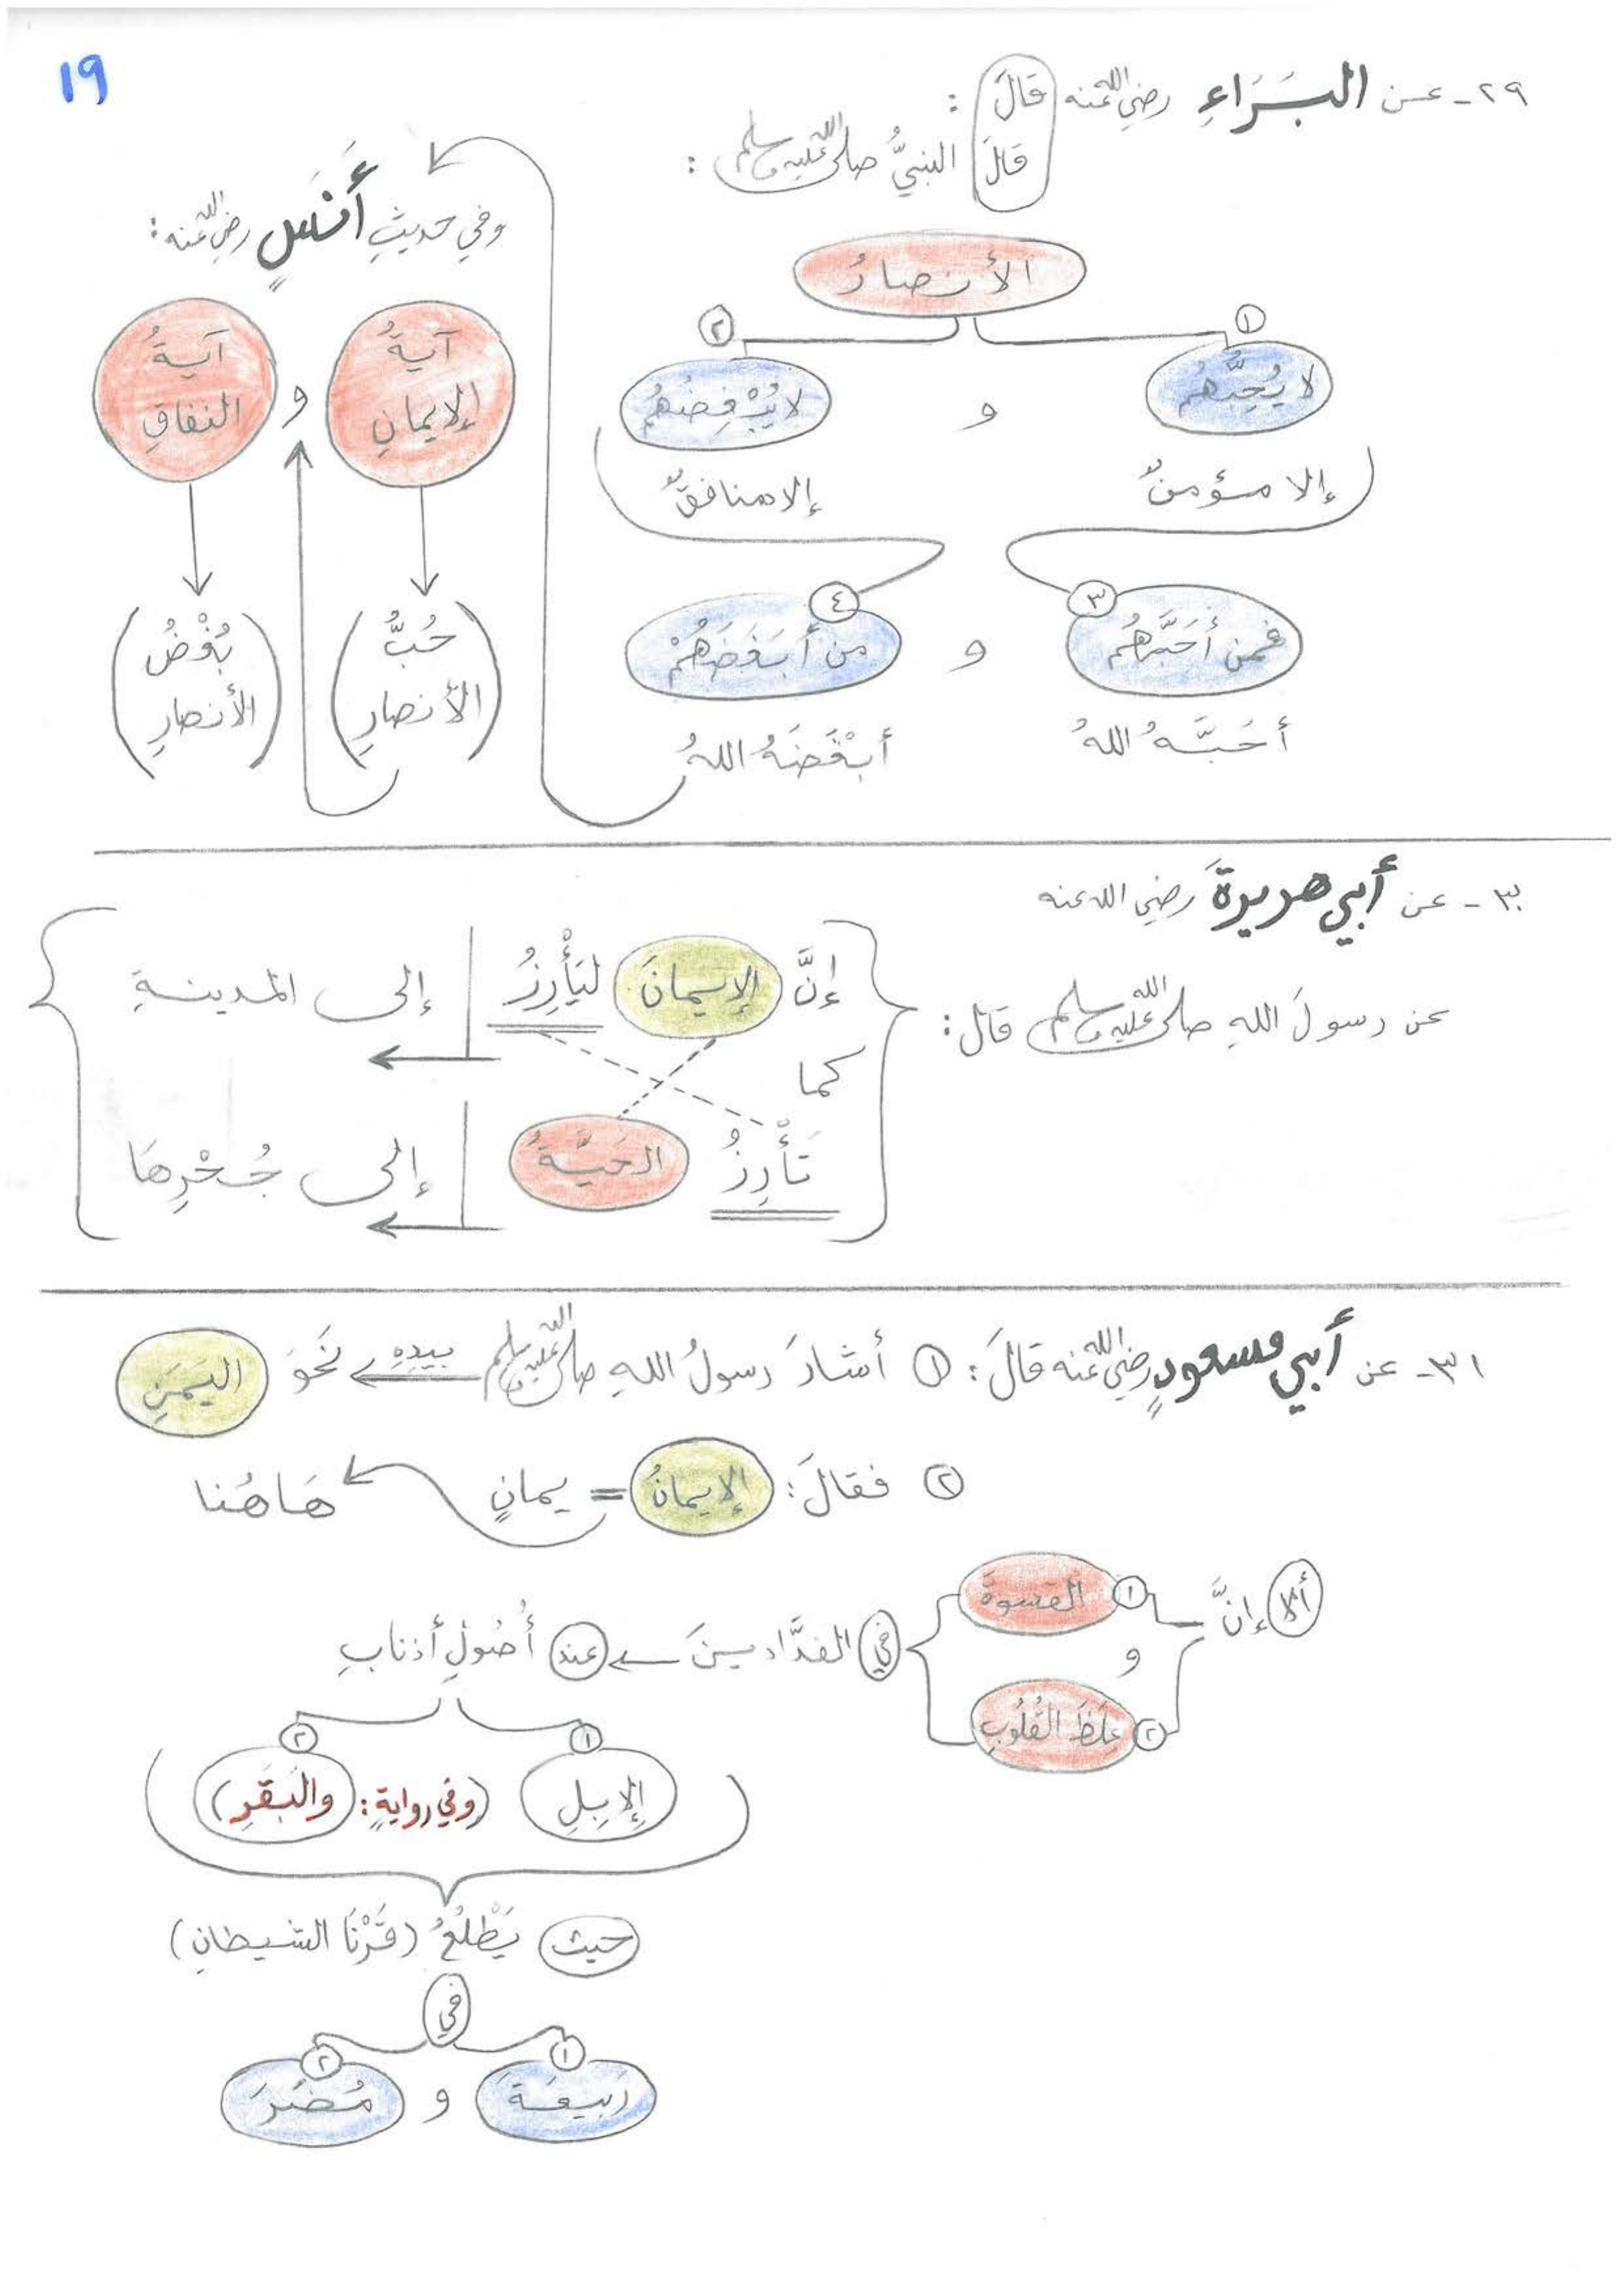 ١٩
٢٩ـ عن البَرَاءِ رضي الله عنه قَالَ :
قَالَ النبيُّ صلى الله عليه وسلم :
الأنصارُ
١
لا يُحِبُّهُم
إلا مؤمنٌ
و
٢
لا يُبْغِضُهُم
إلا منافقٌ
٣
فمن أَحَبَّهُم
أَحَبَّهُ اللهُ
و
٤
من أَبغَضَهُمْ
أَبْغَضَهُ اللهُ
وفي حديثِ أَنَسٍ رضي الله عنه :
آيةُ
الإيمانِ
حُبُّ
الأنصارِ
و
آيةُ
النفاقِ
بُغْضُ
الأنصارِ
٣٠ـ عن أبي هريرةَ رضي الله عنه
عن رسولَ اللهِ صلى الله عليه وسلم قال :
إنَّ الإيمانَ ليَأْرِزُ إلى المدينةِ
كما
تَأْرِزُ الحَيَّةُ إلى جُحْرِهَا
٣١ـ عن أبي مسعودٍ رضي الله عنه قالَ : ١ أشارَ رسولُ اللهِ صلى الله عليه وسلم بيدِهِ نَحْوَ اليَمَنِ
٢ فقالَ : الإيمانُ = يمانٍ هَاهُنا
ألا إنَّ
١ القسوةَ
و
٢ غِلَظَ القُلُوبِ
في الفدَّادينَ عند أُصُولِ أذنابِ
١
الإِبِلِ
٢
(وفي روايةٍ : والبَقَرِ)
حيث يَطْلُعُ (قَرْنَا الشيطانِ)
في
١
رَبيعَةَ
و
٢
مُضَرَ